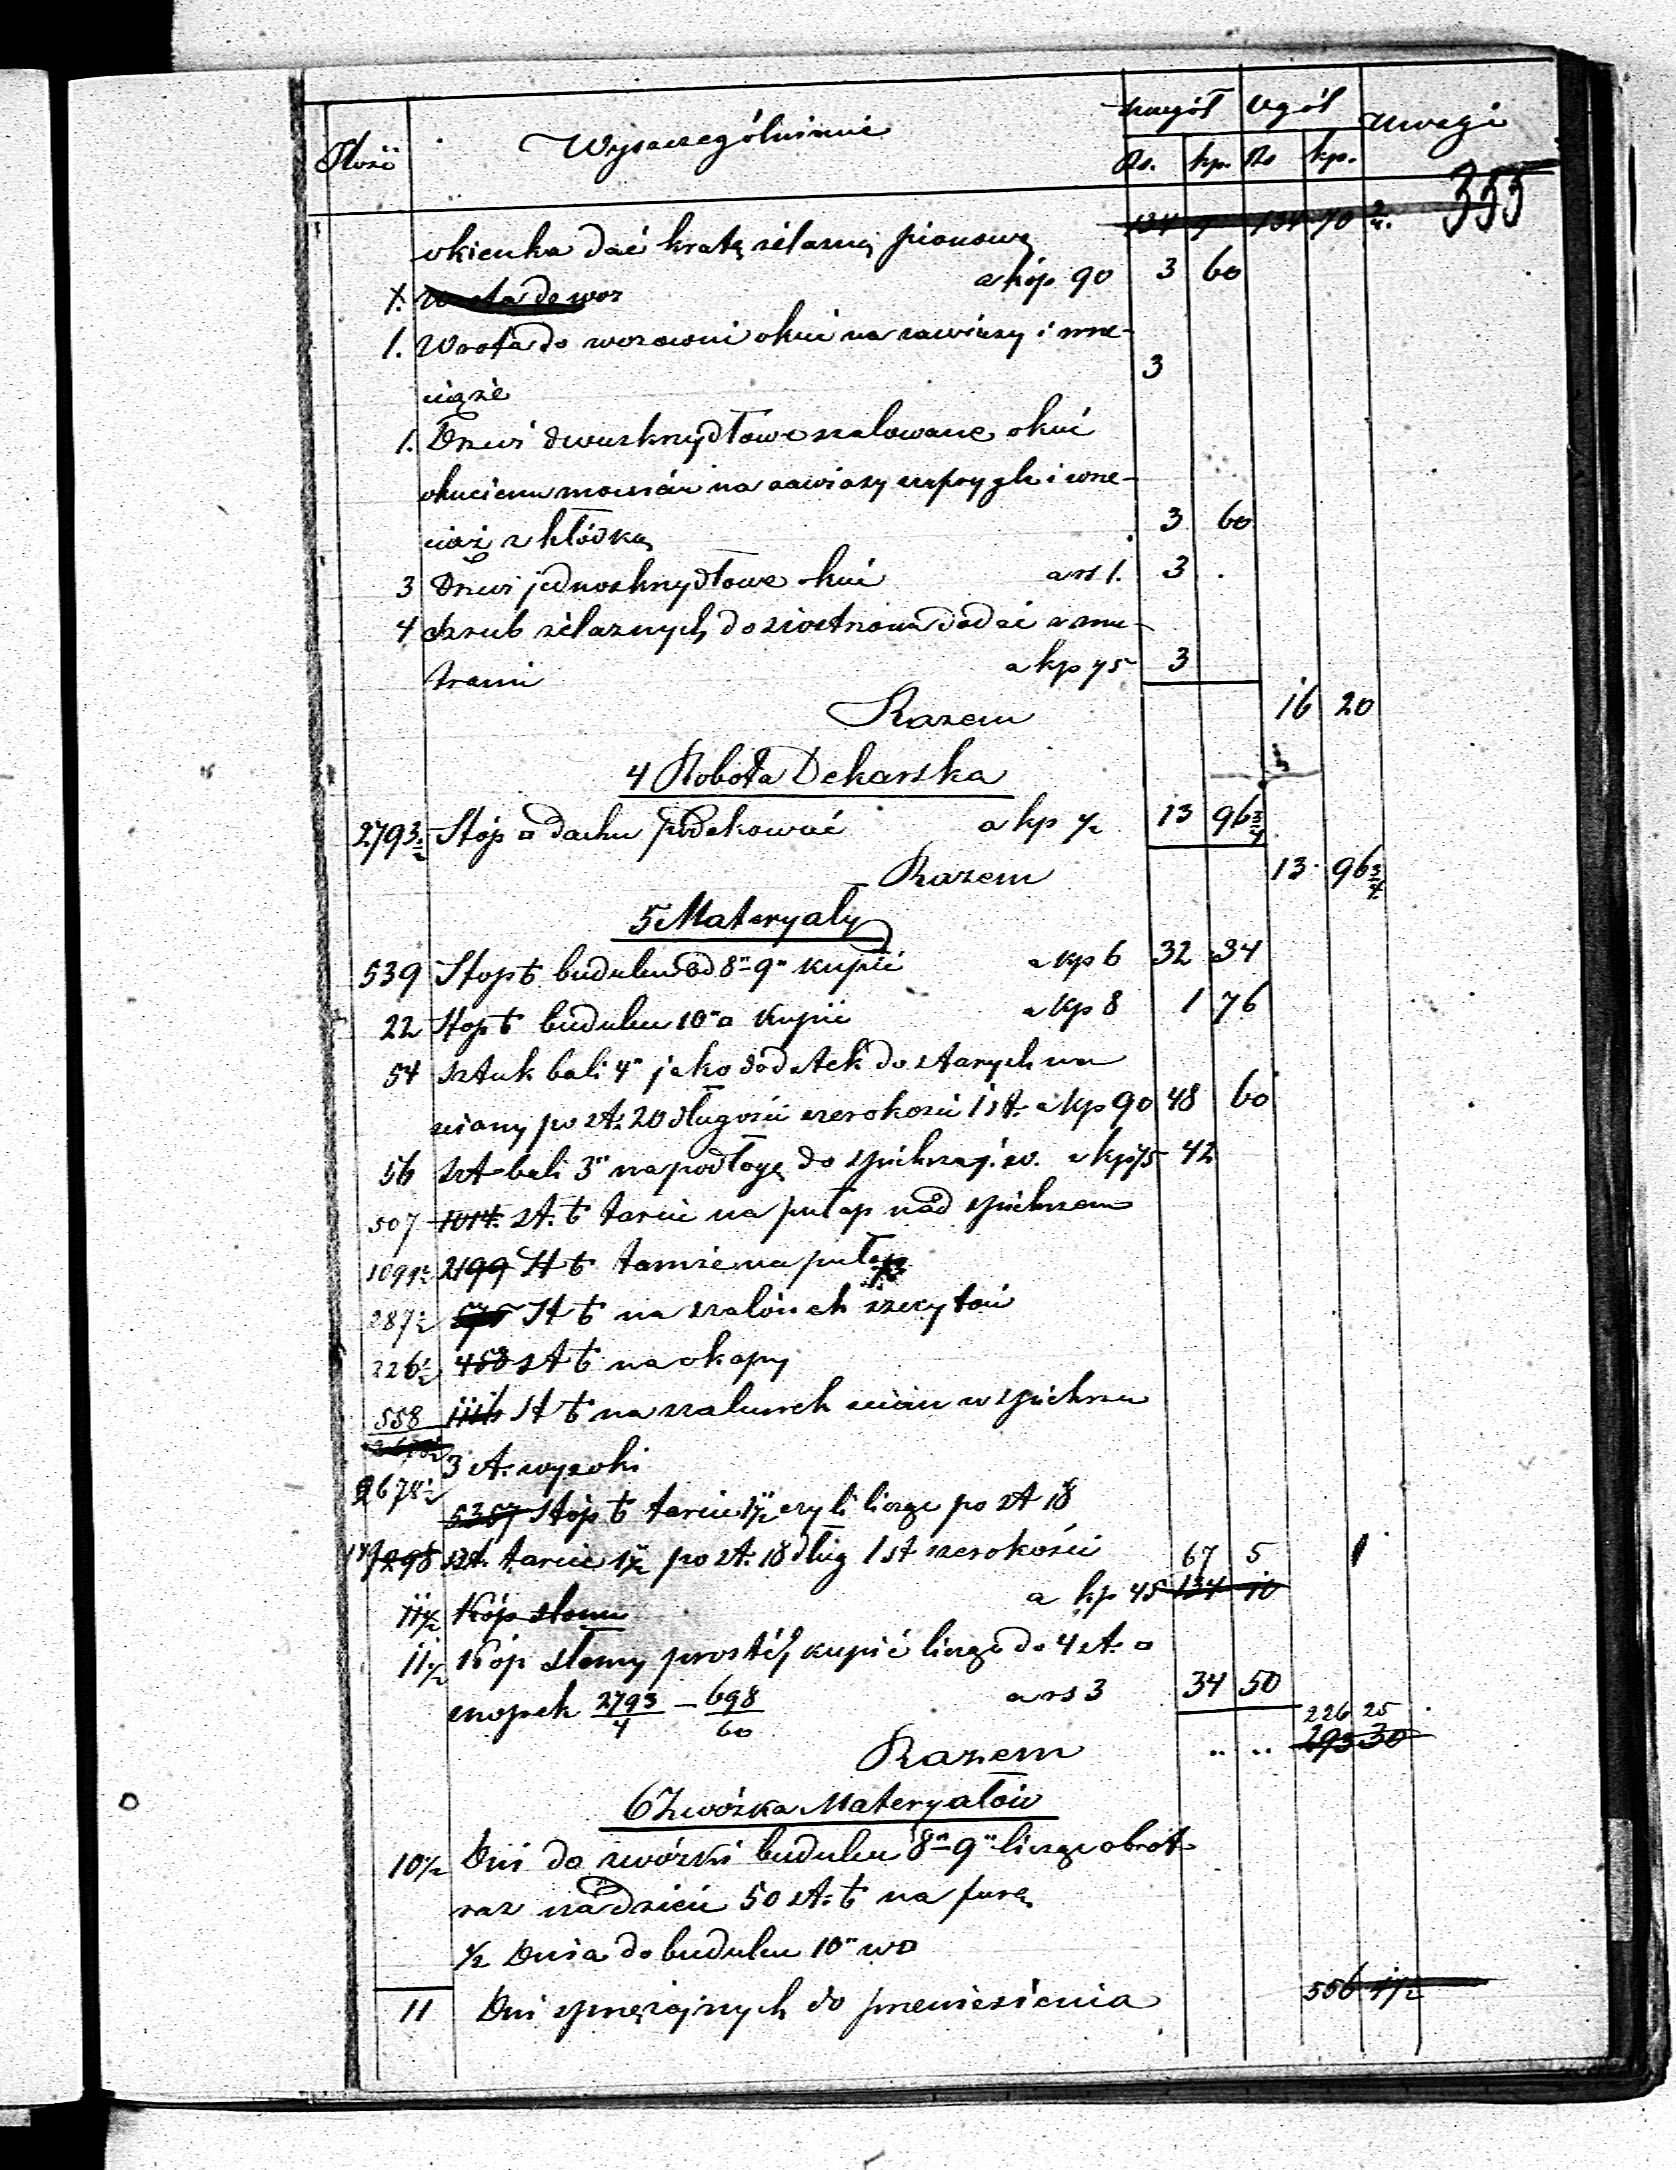 Ilość Wyszczególnienie szczegół Ogół Uwagi
Rs. kp. Rs kp.
355
okienka dać kratę żelazną pionową
a kóp 90 3 60
1. Wrota do wozowni okuć na zawiasy i wrze-
ciąże 3
1. Drzwi dwuskrzydłowe szalowane okuć
okuciem na zawiasy i wrze-
ciąż z kłódką 3 60
3 Drzwi jednoskrzydłowe okuć a rs 1. 3 .
4 Szrub żelaznych do dodać z mu-
trami a kp 75 3
Razem 16 20
4 Robota Dekarska
2793 1/2 Stóp □ dachu podekować a kp 1/2 13 96 3/4
Razem 13 96 3/4
5 Materyały
539 Stop b budulcu od 8"-9" kupić a kp 6 32 34
22 Stop b budulcu 10" □ kupić a kp 8 1 76
54 Sztuk bali 4" jako dodatek do starych na
sciany po st. 20 długości szerokości 1 st. a kp 90 48 60
56 Szt bali 3" na podłogę do spichrza j. w. a kp 75 42
507 1014 st. b tarcic na pułap nad spichrzem
1099 1/2 2199 St b tamże na pułap
287 1/2 575 St b na szalówek szczytów
226 1/2 453 st b na okapy
558 1116 St b na szalunek ścian w spichrzu
3 st. wysoki
2678 1/2
5357 Stóp b tarcic 1 1/2 czyli licząc po st 18
149 298 szt. tarcic 1 1/2 po st. 18 dług 1 st szerokości 67 5
a kp 45 134 10
11 1/2 Kóp słomy
11 1/2 Kóp słomy prostéj kupić licząc do 4 st. □
snopek 2793/4 — 698/60 a rs 3 34 50
226 25
Razem " " 293 30
6 Zwózka Materyałów
10 1/2 Dni do zwózki budulcu 8"-9" licząc obrót
raz na dzień 50 st. b na furę
1/2 Dnia do budulcu 10" w □
11 Dni sprzężajnych do przewiezienia